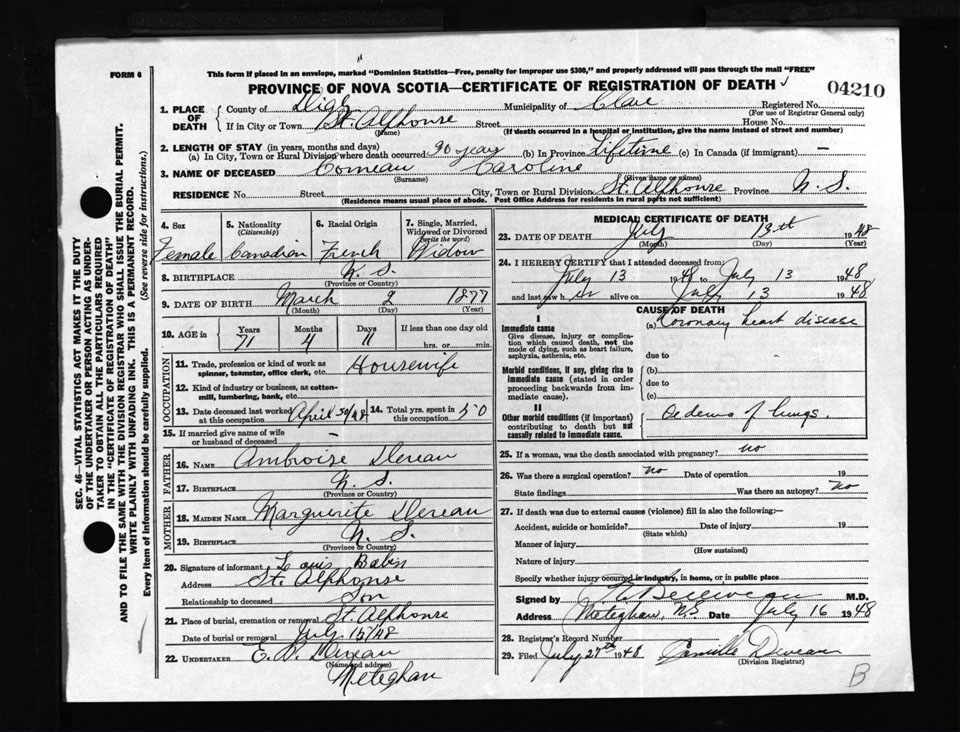 FORM 6
This form if placed in an envelope, marked "Dominion Statistics—Free, penalty for improper use $300," and properly addressed will pass through the mail "FREE"
PROVINCE OF NOVA SCOTIA—CERTIFICATE OF REGISTRATION OF DEATH
04210
1. PLACE OF DEATH
County of Digby Municipality of Clare Registered No.
(For use of Registrar General only)
If in City or Town St. Alphonse Street House No.
(Name) (If death occurred in a hospital or institution, give the name instead of street and number)
2. LENGTH OF STAY (in years, months and days)
(a) In City, Town or Rural Division where death occurred 90 years (b) In Province Lifetime (c) In Canada (if immigrant) —
3. NAME OF DECEASED Comeau Caroline
(Surname) (Given name or names)
RESIDENCE No. Street City, Town or Rural Division St. Alphonse Province N.S.
(Residence means usual place of abode. Post Office Address for residents in rural parts not sufficient)
4. Sex
Female
5. Nationality
(Citizenship)
Canadian
6. Racial Origin
French
7. Single, Married, Widowed or Divorced
(write the word)
Widow
8. BIRTHPLACE N.S.
(Province or Country)
9. DATE OF BIRTH March 2 1877
(Month) (Day) (Year)
10. AGE in
Years Months Days If less than one day old
71 4 11 hrs. or min.
OCCUPATION
11. Trade, profession or kind of work as spinner, teamster, office clerk, etc. Housewife
12. Kind of industry or business, as cotton-mill, lumbering, bank, etc.
13. Date deceased last worked at this occupation April 30/48
14. Total yrs. spent in this occupation 50
15. If married give name of wife or husband of deceased —
FATHER
16. NAME Ambroise
17. BIRTHPLACE N.S.
(Province or Country)
MOTHER
18. MAIDEN NAME Marguerite
19. BIRTHPLACE N.S.
(Province or Country)
20. Signature of informant Louis Babin
Address St. Alphonse
Relationship to deceased Son
21. Place of burial, cremation or removal St. Alphonse
Date of burial or removal July 15/48
22. UNDERTAKER E.
(Name and address)
Meteghan
MEDICAL CERTIFICATE OF DEATH
23. DATE OF DEATH July 13th 1948
(Month) (Day) (Year)
24. I HEREBY CERTIFY that I attended deceased from:
July 13 1948 to July 13 1948
and last saw her alive on July 13 1948
CAUSE OF DEATH
I
Immediate cause
Give disease, injury or complication which caused death, not the mode of dying, such as heart failure, asphyxia, asthenia, etc.
(a) Coronary heart disease
due to
Morbid conditions, if any, giving rise to immediate cause (stated in order proceeding backwards from immediate cause).
(b)
due to
(c)
II
Other morbid conditions (if important) contributing to death but not causally related to immediate cause.
Oedema of lungs.
25. If a woman, was the death associated with pregnancy? no
26. Was there a surgical operation? no Date of operation 19
State findings Was there an autopsy? no
27. If death was due to external causes (violence) fill in also the following:—
Accident, suicide or homicide? Date of injury 19
(State which)
Manner of injury
(How sustained)
Nature of injury
Specify whether injury occurred in industry, in home, or in public place
Signed by Belliveau M.D.
Address Meteghan, N.S. Date July 16 1948
28. Registrar's Record Number
29. Filed July 27th 1948 Camille Deveau
(Division Registrar)
B
SEC. 46—VITAL STATISTICS ACT MAKES IT THE DUTY
OF THE UNDERTAKER OR PERSON ACTING AS UNDER-
TAKER TO OBTAIN ALL THE PARTICULARS REQUIRED
IN THE "CERTIFICATE OF REGISTRATION OF DEATH"
AND TO FILE THE SAME WITH THE DIVISION REGISTRAR WHO SHALL ISSUE THE BURIAL PERMIT.
WRITE PLAINLY WITH UNFADING INK. THIS IS A PERMANENT RECORD.
Every item of Information should be carefully supplied. (See reverse side for instructions.)